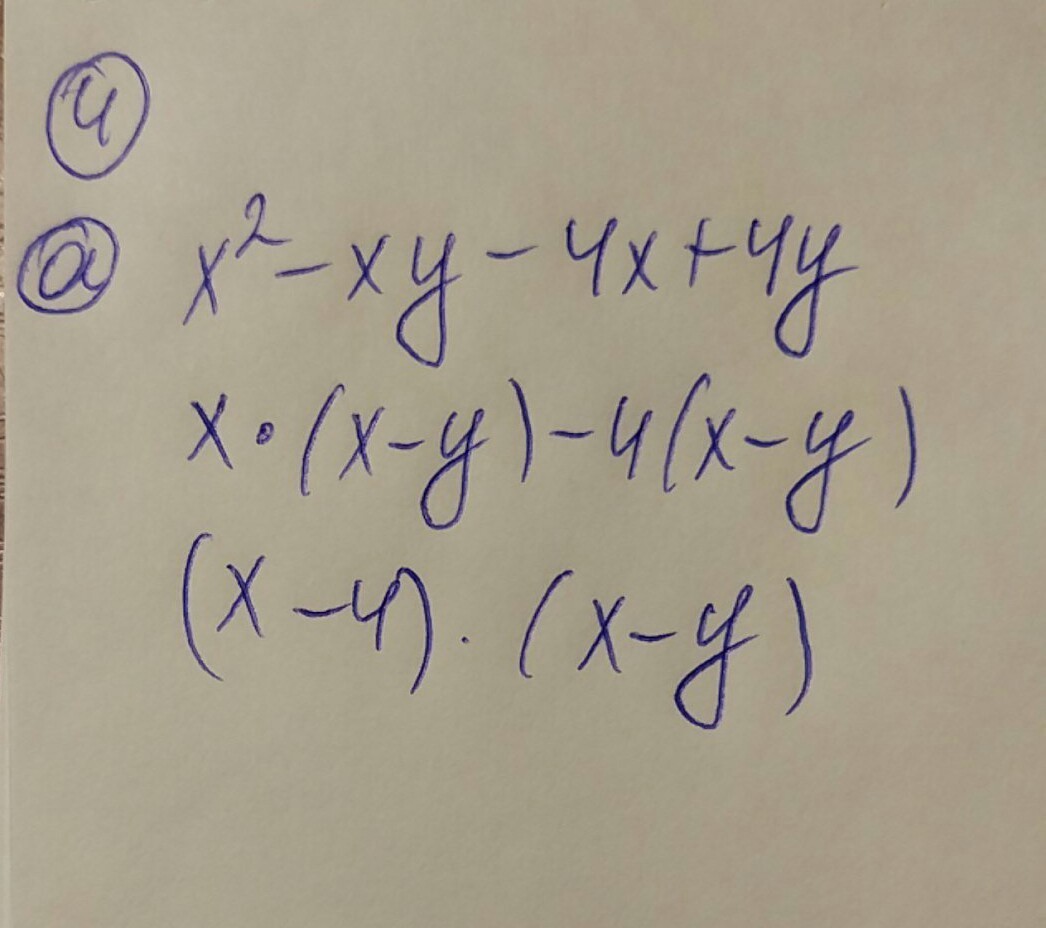 4
a x² - xy - 4x + 4y
x · (x - y) - 4(x - y)
(x - 4) · (x - y)